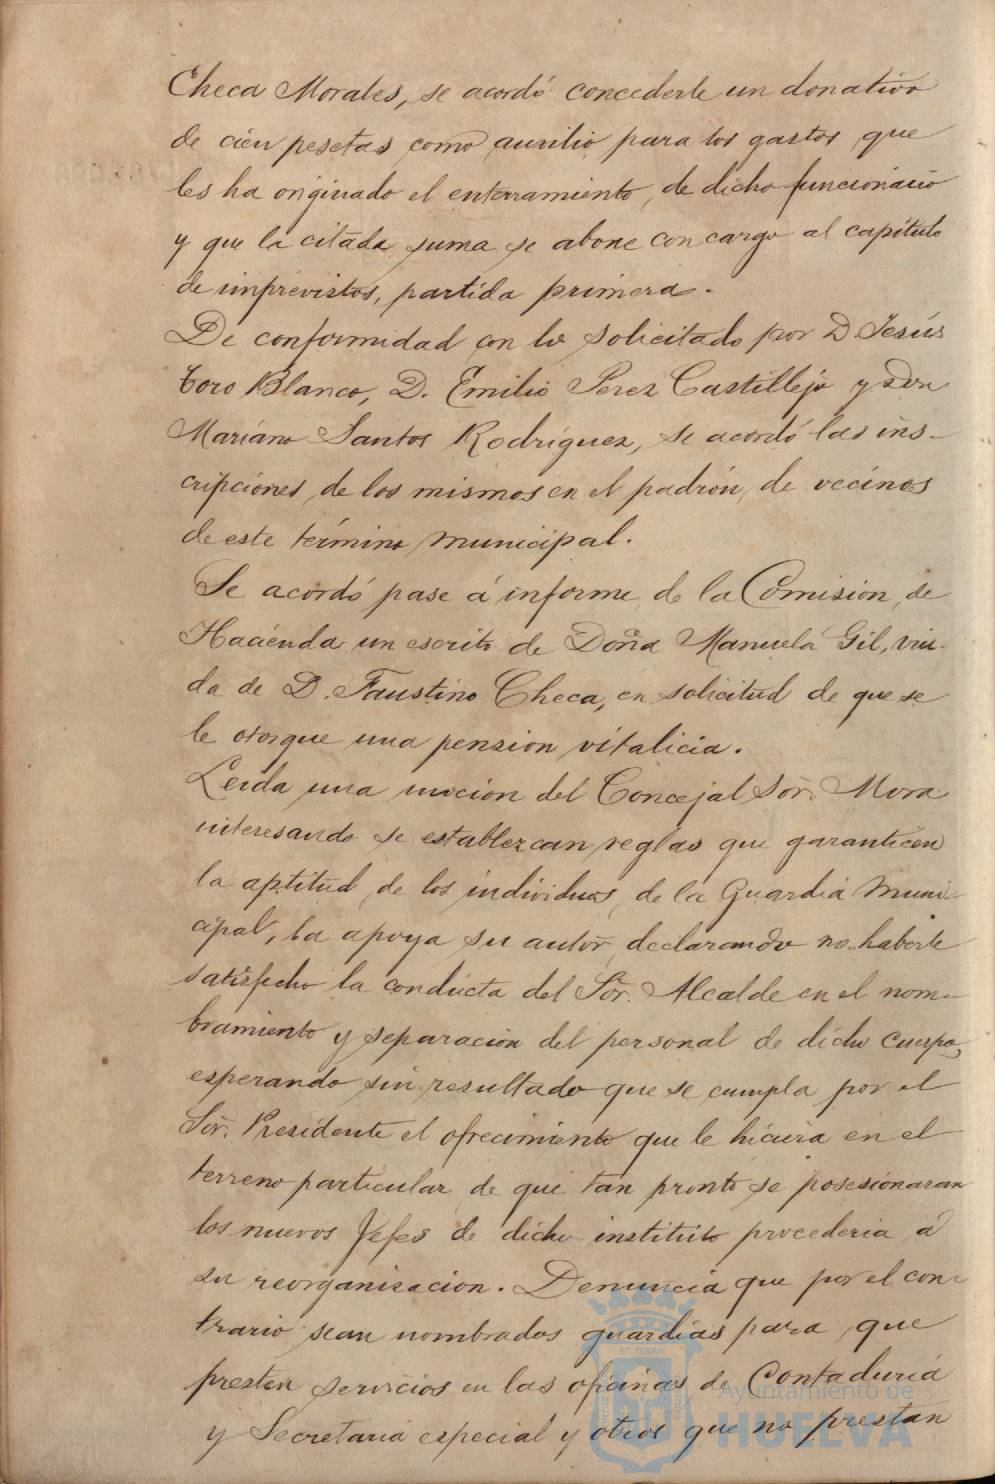 Checa Morales, se acordó concederle un donativo
de cien pesetas como auxilio para los gastos que
les ha originado el enterramiento de dicho funcionario
y que la citada suma se abone con cargo al capítulo
de imprevistos, partida primera.
De conformidad con lo solicitado por D. Jesús
Toro Blanco, D. Emilio Perez Castillejo y Don
Mariano Santos Rodríguez, se acordó las ins-
cripciones de los mismos en el padrón de vecinos
de este término municipal.
Se acordó pase á informe de la Comision de
Hacienda un escrito de Doña Manuela Gil, viu-
da de D. Faustino Checa, en solicitud de que se
le otorgue una pension vitalicia.
Leida una mocion del Concejal Sor. Mora
interesando se establezcan reglas que garanticen
la aptitud de los individuos de la Guardia Muni-
cipal, la apoya su autor declarando no haberle
satisfecho la conducta del Sor. Alcalde en el nom-
bramiento y separacion del personal de dicho Cuerpo,
esperando sin resultado que se cumpla por el
Sor. Presidente el ofrecimiento que le hiciera en el
terreno particular de que tan pronto se posesionaran
los nuevos Jefes de dicho instituto procederia a
su reorganizacion. Denuncia que por el con-
trario sean nombrados guardias para que
presten servicios en las oficinas de Contaduria
y Secretaria especial y otros que no prestan
Ayuntamiento de
HUELVA